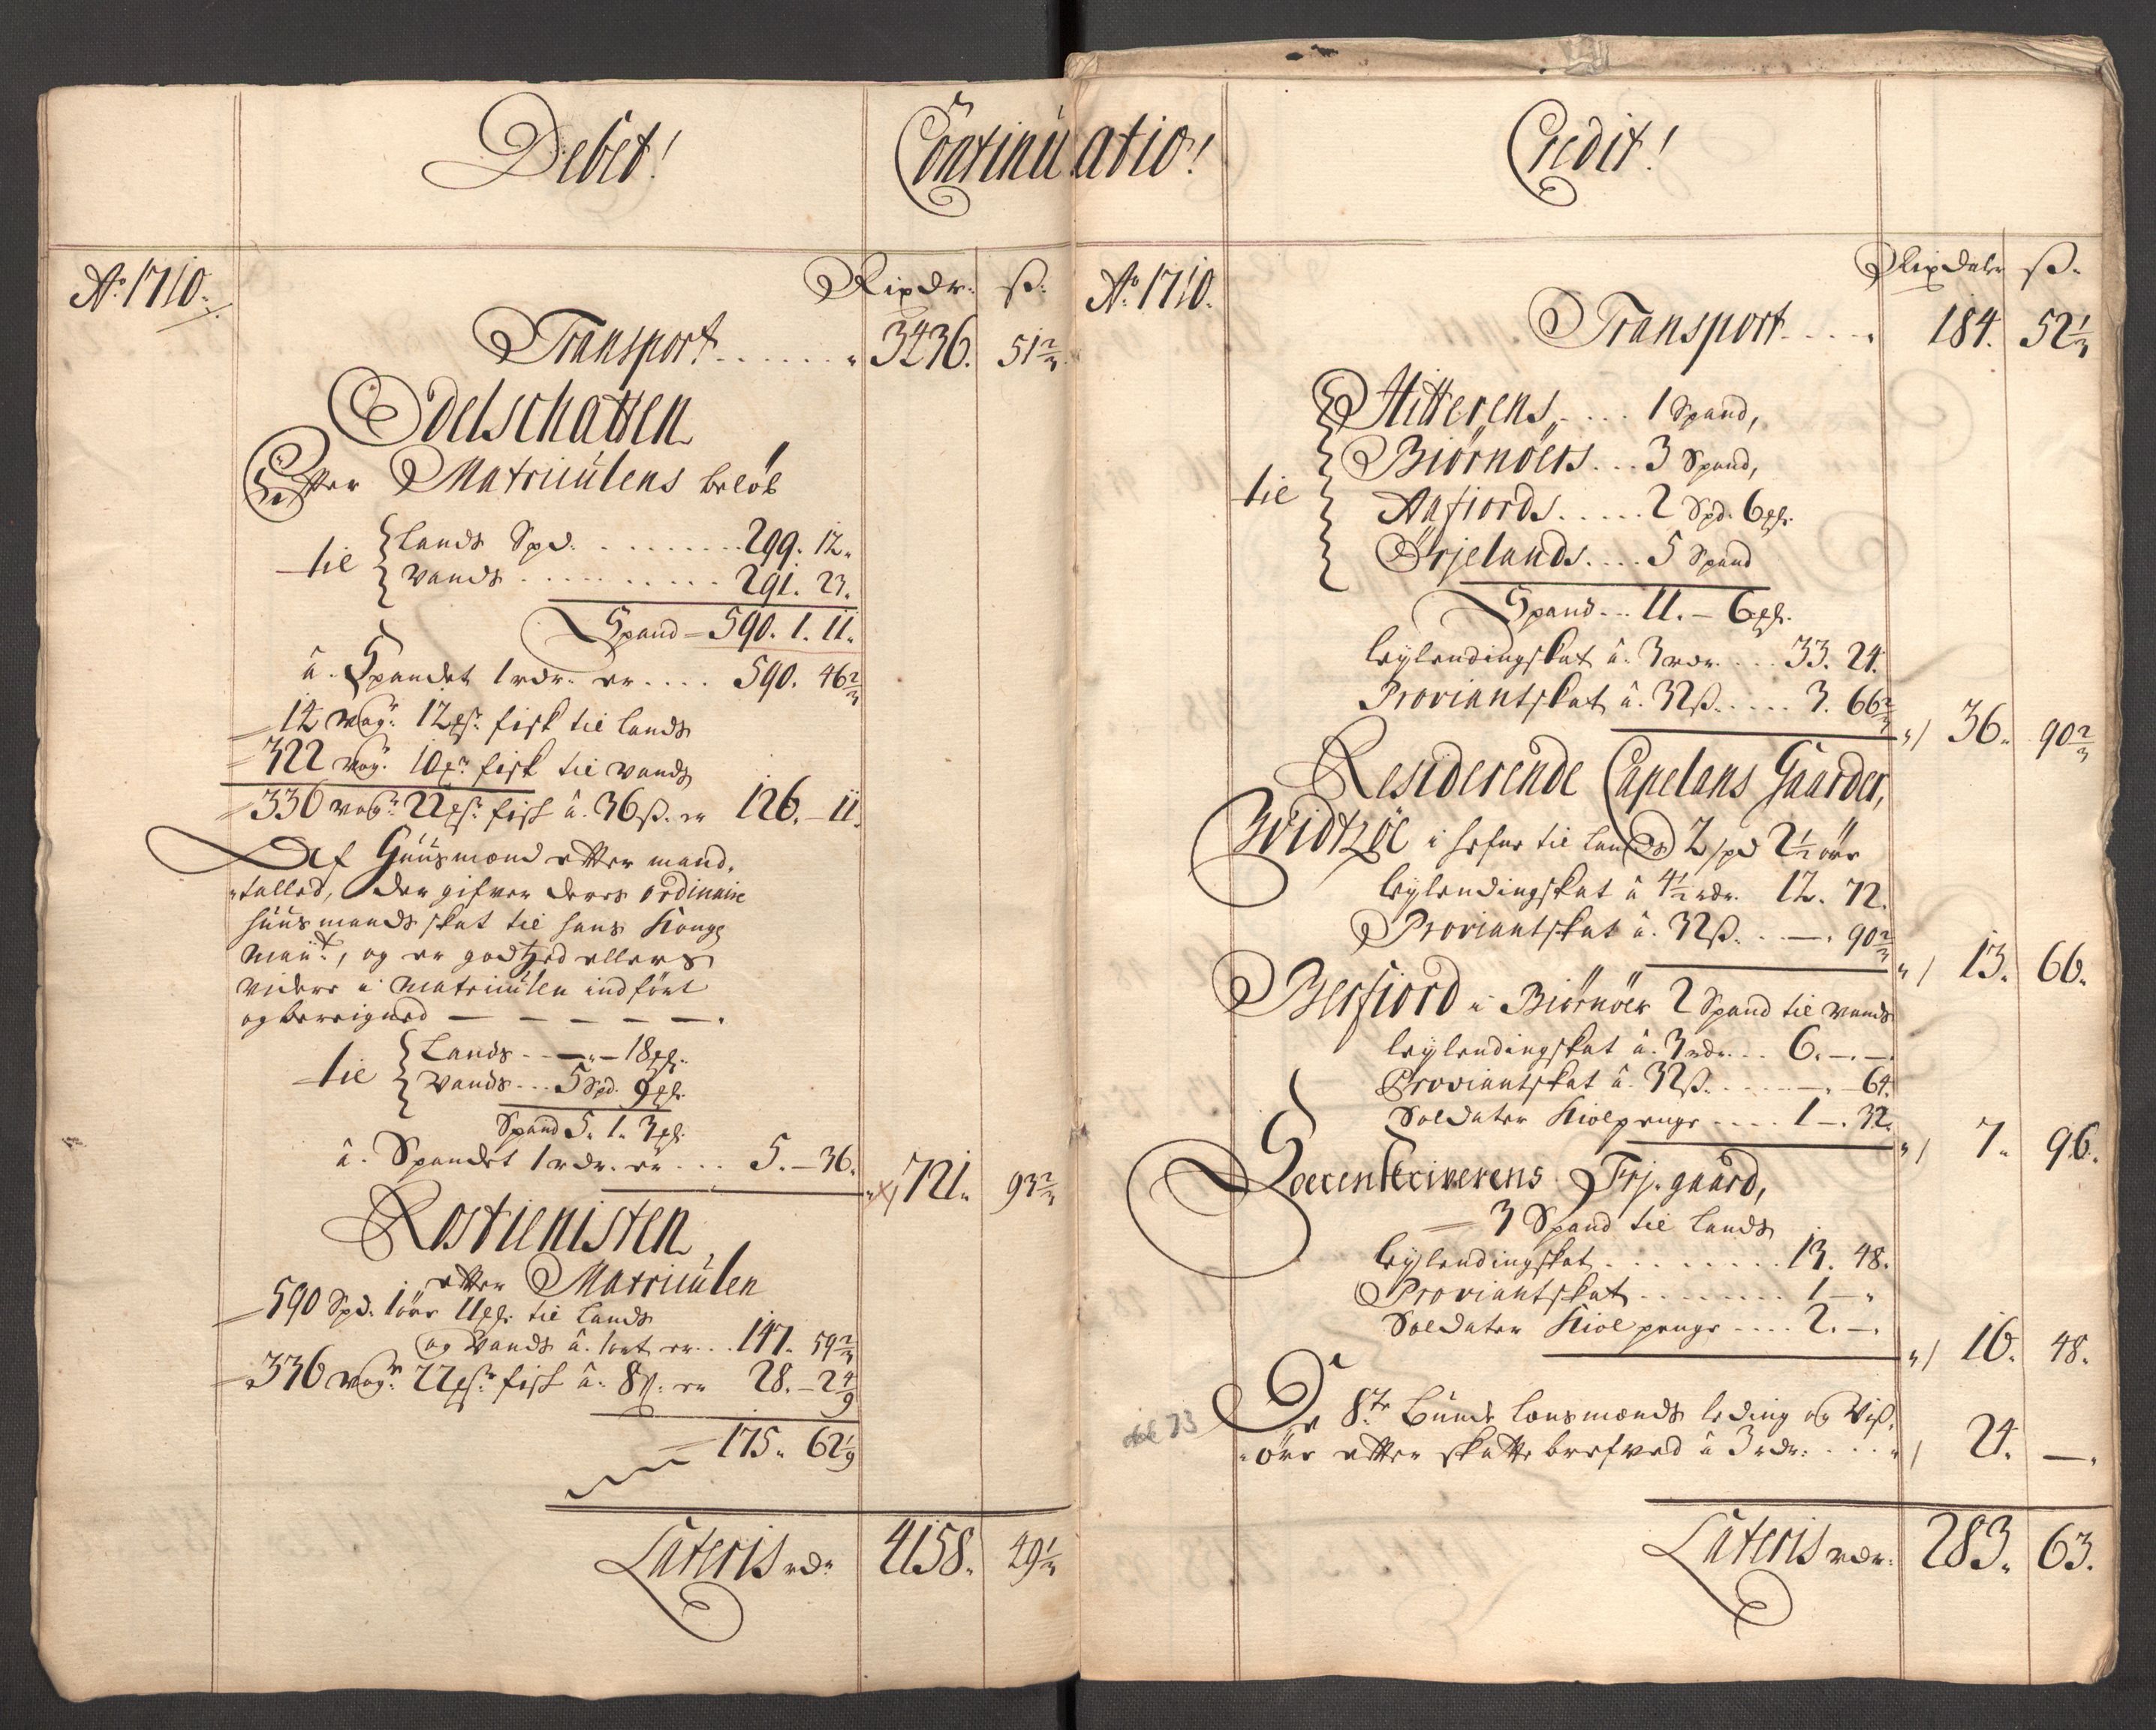 Debet!
Continuatio!
Ao. 1710.
Rixdr. ß.
Transport . . . . . . 3436. 51 2/3
Odelschatten
Efter Matriculens beløb
til
Lands Spd. . . . . . . . . 299. 12.
Vands . . . . . . . . . . 291. 23.
Spand - 590. 1. 11.
â. Spandet 1 rdr. er . . . . 590. 46 2/3
14 wog. 12 fisk til lands
322 wog. 10 fisk til vands
336 wog. 22 fisk â. 36 ß. er 126. - 11.
Af Huusmænd efter mand-
talled, der gifver deres ordinaire
huusmands skat til hans Kongl
Mayt., og er godtzed ellers
videre i matriculen indført
og bereigned — — — — —.
til
Lands - - — . — 18
Vands . . . 5 Spd. 9
Spand 5. 1. 3
â. Spandet 1 rdr. er . . . 5. - 36.
721. 93 2/3
Rostienisten
efter Matriculen
590 Spd. 1 öre 11 til lands
og Vands â. 1 ort er . . . 147. 59 2/3
336 wog. 22 fisk â. 8 ß. er 28. - 2 4/9
175. 62 1/9
Lateris rdr. 4158. 49 1/3
Credit!
Ao. 1710.
Rixdaler ß.
Transport . . . . 184. 52 1/3
til
Hitterens . . . . 1 Spand,
Biörnöers . . . 3 Spand,
Aafiords . . . . . 2 Spd. 6
Ørjelands . . . . 5 Spand
Spand . . . 11. - 6
leylendingskat â. 3 rdr. . . . 33. 24.
Proviantskat â. 32 ß. . . . . 3. 66 2/3
36. 90 2/3
Residerende Capelans Gaarder,
til lands 2 spd 2 1/2 öre
leylendingskat â 4 1/2 rdr. 12. 72.
Proviantskat â. 32 ß. . . —. 90 2/3
13. 66.
Berfiord i Biörnöer 2 Spand til vands
leylendingskat â. 3 rdr. . . 6. —. —.
Proviantskat â. 32 ß. . . . . —. 64.
Soldater Kiolpenge . . . . 1 —. 32.
7. 96.
Soerenskriverens Frj. gaard,
3 Spand til lands
leylendingskat . . . . . . . . 13. 48.
Proviantskat . . . . . . . . 1 — .
Soldater Kiolpenge . . . . 2. —.
16. 48.
De 8te Bunde lensmænds leding og Vis-
øre efter skattebrefved â 3 rdr. . . . . 24. —.
Lateris rdr. 283. 63.